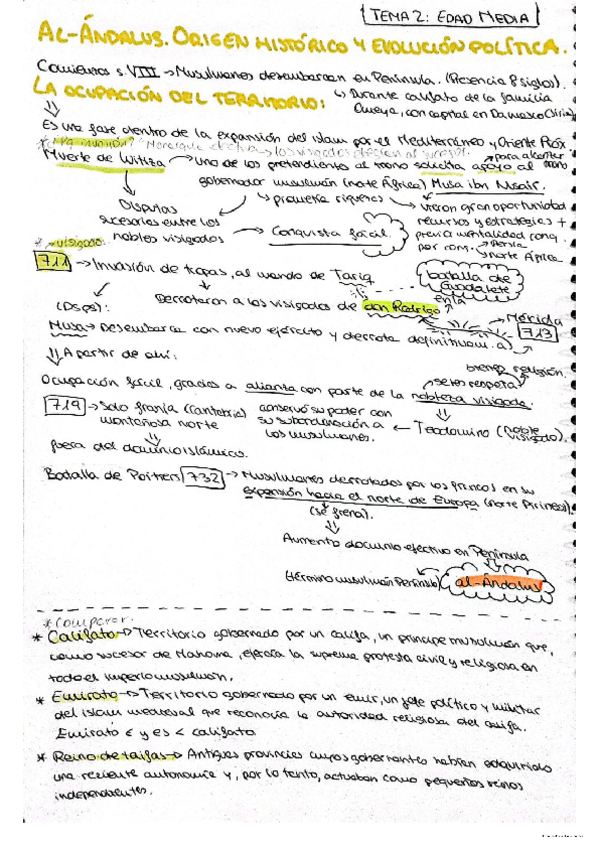 TEMA 2: EDAD MEDIA
AL-ÁNDALUS. ORIGEN HISTÓRICO Y EVOLUCIÓN POLÍTICA.
Comienzos s. VIII → Musulmanes desembarcan en Península. (Presencia 8 siglos).
↳ Durante califato de la familia
Omeya, con capital en Damasco (Siria)
LA OCUPACIÓN DEL TERRITORIO:
Es una fase dentro de la expansión del islam por el Mediterráneo y Oriente Próx.
los visigodos elegían al sucesor.
Muerte de Witiza → uno de los pretendientes al trono solicita apoyo al
para alcanzar
trono
gobernador musulmán (norte África) Musa ibn Nusair.
↳ prometía riquezas
Disputas
sucesorias entre los
nobles visigodos
→ Conquista fácil.
Vieron gran oportunidad
recursos y estrategias +
previa mentalidad conq.
por conq. → Persia
→ Norte África
* → visigodo.
711 → Invasión de tropas, al mando de Tariq
↳ Derrotaron a los visigodos de don Rodrigo
en la
batalla de
Guadalete
(Dsps):
Musa → Desembarca con nuevo ejército y derrota definitivam. a)
Mérida
713
⇓ A partir de ahí:
Ocupación fácil, gracias a alianza con parte de la nobleza visigoda.
se les respeta
religión.
719 → Solo franja (Cantabria)
montañosa norte
fuera del dominio islámico.
conservó su poder con
su subordinación a
los musulmanes.
← Teodomiro (noble visigodo).
Batalla de Poitiers 732 → Musulmanes derrotados por los francos en su
expansión hacia el norte de Europa (norte Pirineos).
(se frena).
Aumento dominio efectivo en Península
(término musulmán Península) al-Ándalus
* Comparar.
* Califato → Territorio gobernado por un califa, un príncipe musulmán que,
como sucesor de Mahoma, ejercía la suprema protesta civil y religiosa en
todo el imperio musulmán.
* Emirato → Territorio gobernado por un emir, un jefe político y militar
del islam medieval que reconocía la autoridad religiosa del califa.
Emirato € y es < califato
* Reino de taifas → Antiguas provincias cuyos gobernantes habían adquirido
una reciente autonomía y, por lo tanto, actuaban como pequeños reinos
independientes.